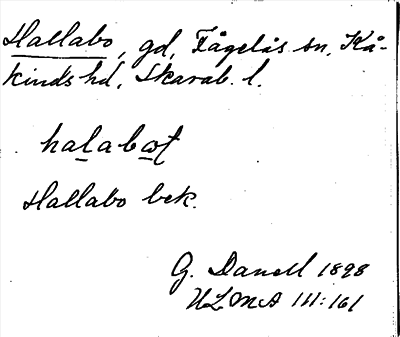 Hallabo, gd, Fågelås sn, Kå-
kinds hd, Skarab. l.
halabωt
Hallabo bek.
G. Danell 1898
ULMA 111:161